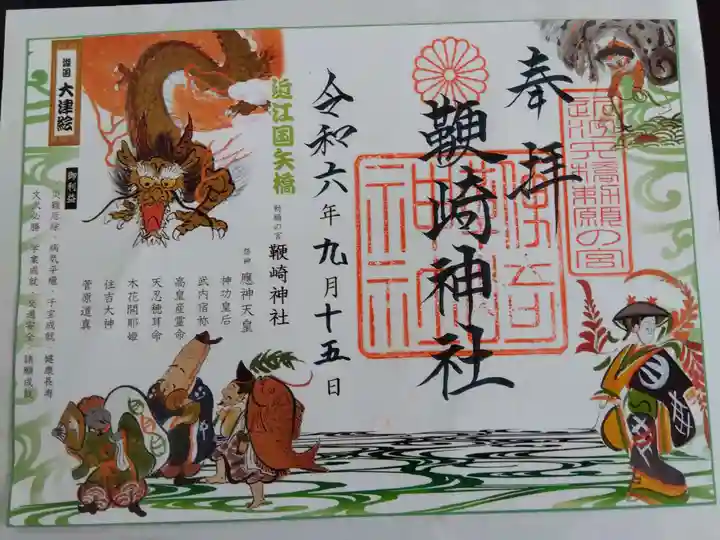 奉拝
鞭崎神社
令和六年九月十五日
近江国矢橋
祈願の宮 鞭崎神社
祭神 應神天皇
神功皇后
武内宿祢
高皇産霊命
天忍穂耳命
木花開耶姫
住吉大神
菅原道真
大津絵
御利益
災難厄除・病気平癒・子宝成就・健康長寿
文武必勝・学業成就・交通安全・諸願成就